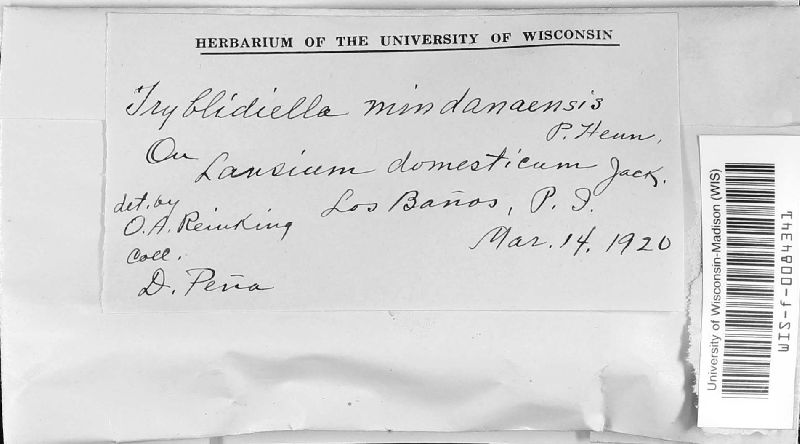 HERBARIUM OF THE UNIVERSITY OF WISCONSIN
Tryblidiella mindanaensis
P. Henn.
On Lansium domesticum Jack.
det. by
O. A. Reinking
Los Baños, P. I.
Coll.
Mar. 14, 1920
D. Peña
University of Wisconsin-Madison (WIS)
WIS-f-0084341